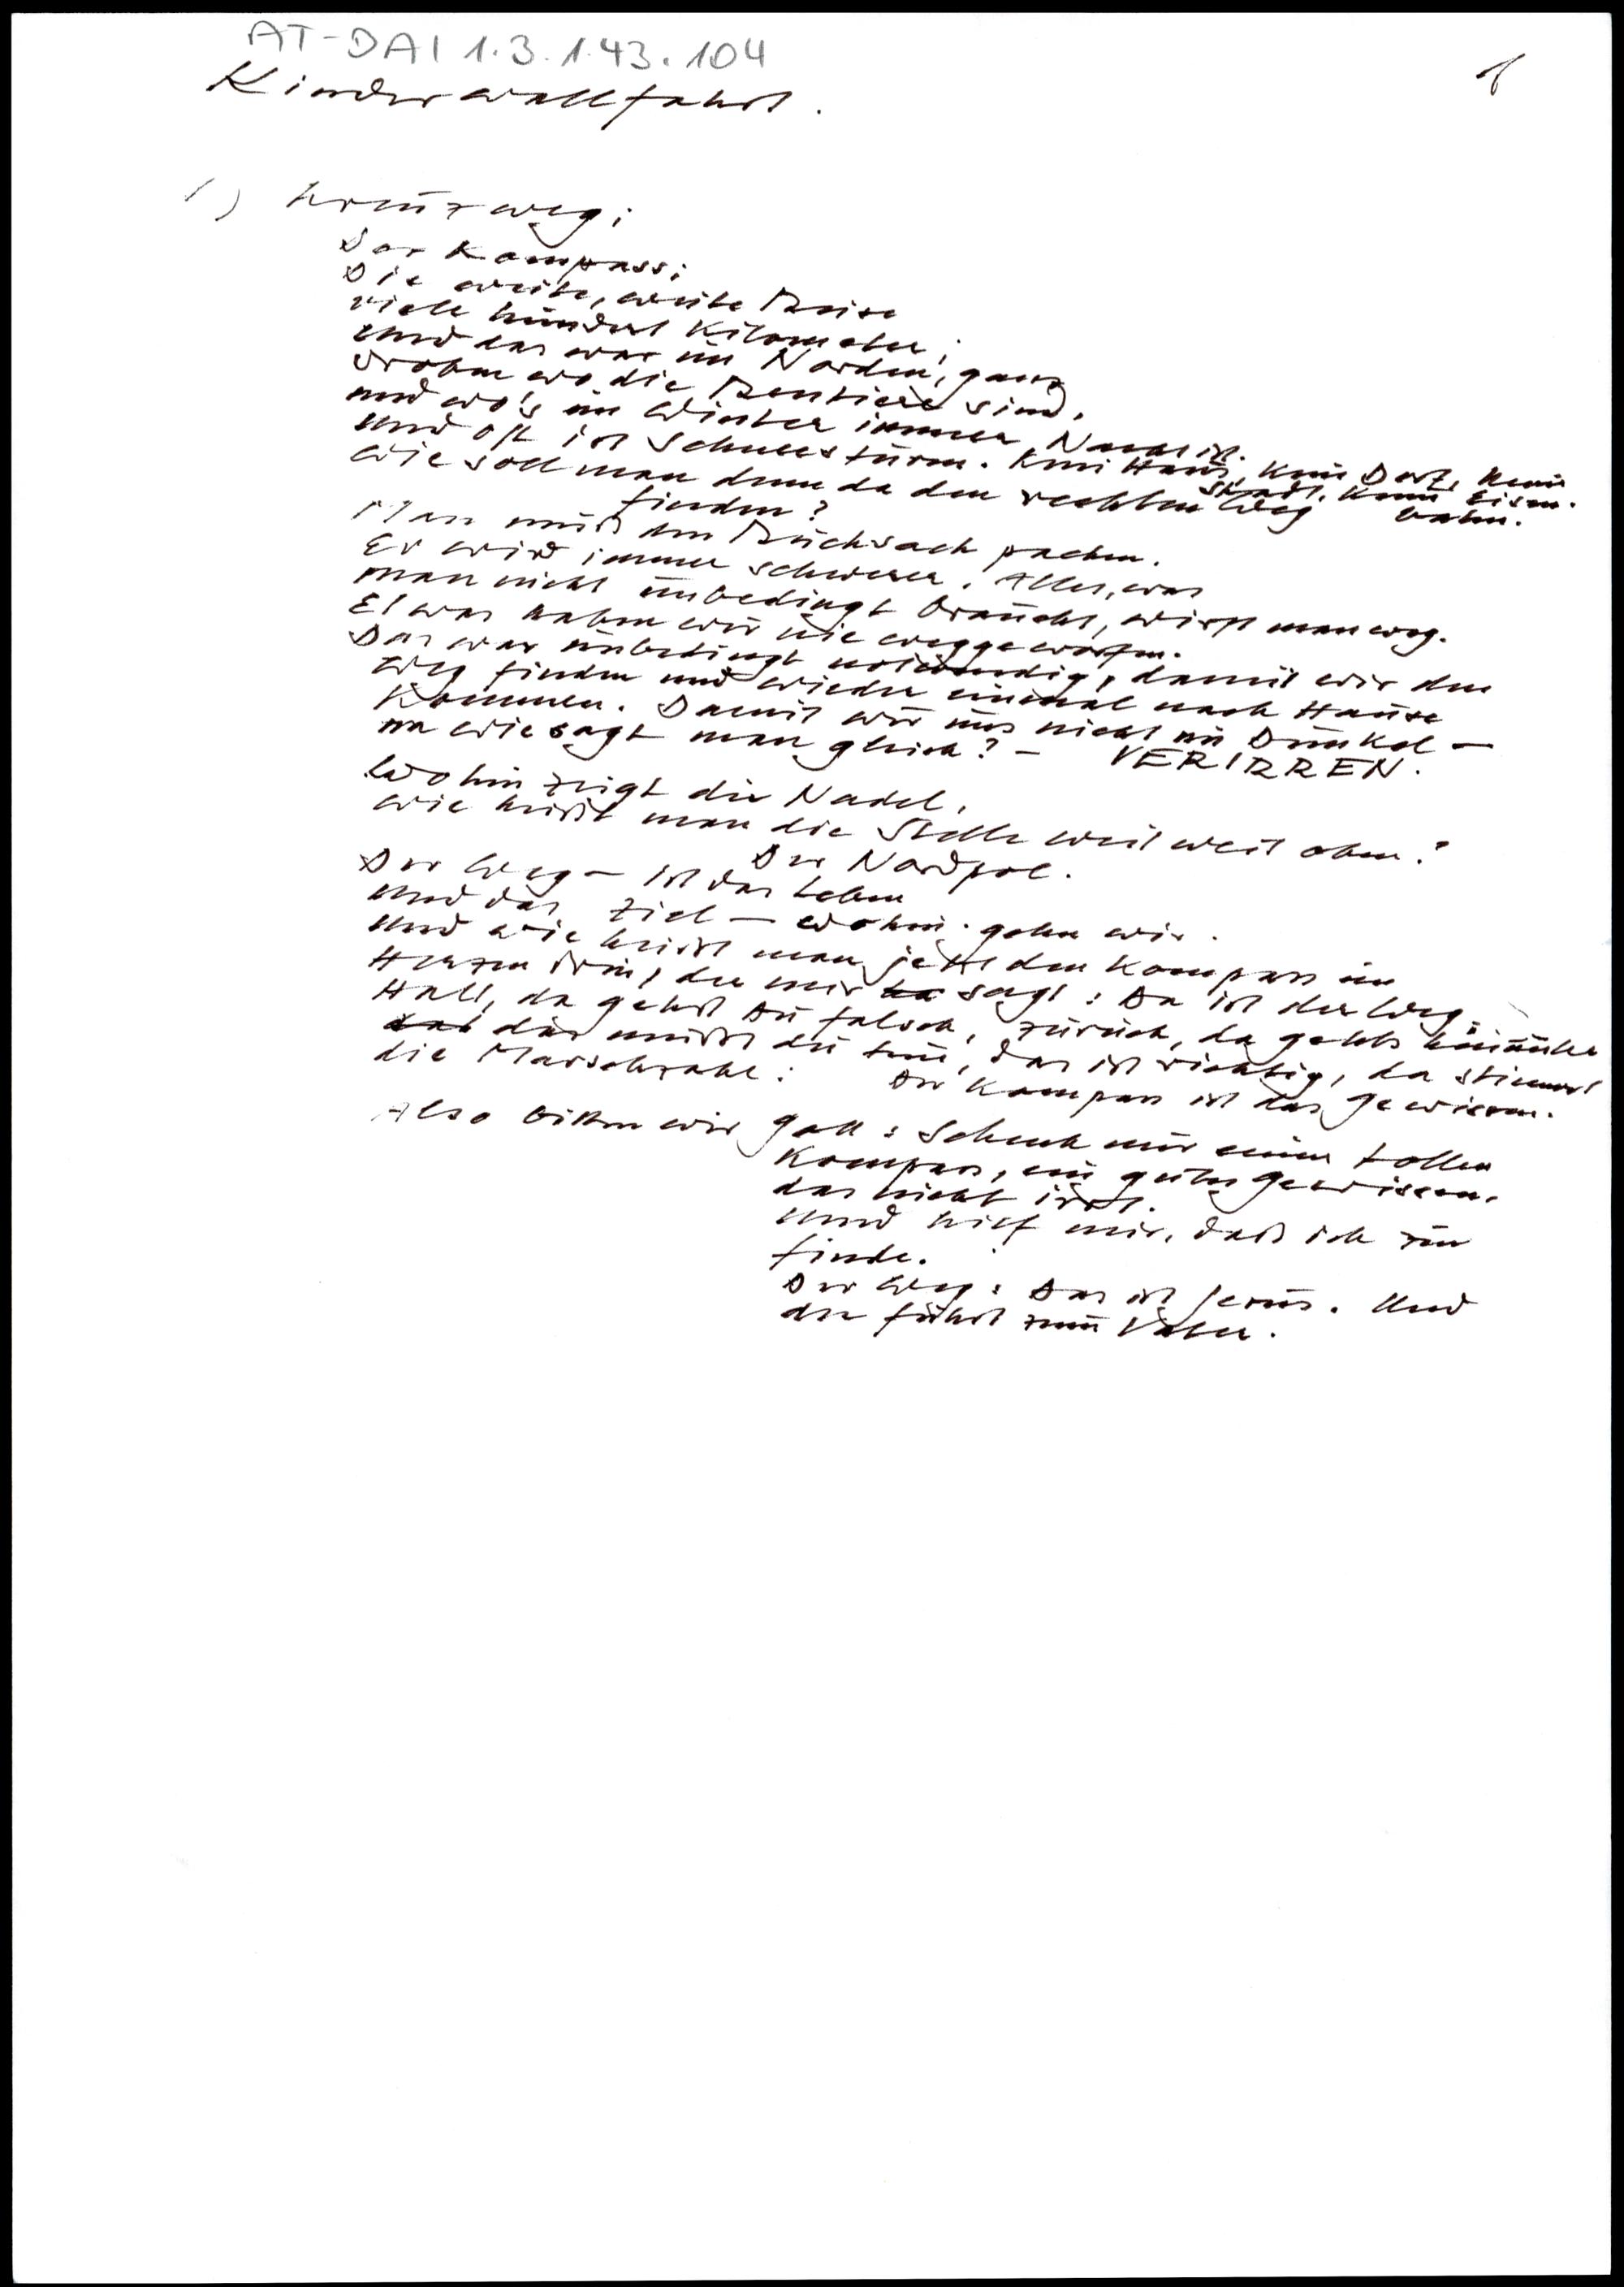 AT-DAI 1.3.1.43.104
Kinderwallfahrt.
1
1) Kreuzweg:
Der Kompass:
Die weite, weite Reise
viele hundert Kilometer;
und das war im Norden, ganz
droben wo die Rentiere sind,
und wo's im Winter immer Nacht ist.
und oft ist Schneesturm. Kein Haus, kein Dorf, keine
Stadt, keine Eisen-
bahn.
Wie soll man denn da den rechten Weg
finden?
Man muß den Rucksack packen.
Er wird immer schwerer. Alles, was
man nicht unbedingt braucht, wirft man weg.
Etwas haben wir nie weggeworfen.
Das war unbedingt notwendig, damit wir den
Weg finden und wieder einmal nach Hause
kommen. Damit wir uns nicht im Dunkel –
na wie sagt man gleich? – VERIRREN.
Wohin zeigt die Nadel,
wie heißt man die Stelle weit weit oben?
Der Nordpol.
Der Weg – ist das Leben
und das Ziel – wohin gehn wir.
und wie heißt man jetzt den Kompass im
Herzen drin, der mir sagt: Da ist der Weg,
Halt, da gehst Du falsch, zurück, da gehts hinunter
das mußt du tun, das ist richtig, da stimmt
die Marschzahl: Der Kompass ist das Gewissen.
Also bitten wir Gott: Schenk mir einen tollen
Kompass, ein gutes Gewissen,
das nicht irrt.
Und hilf mir, daß ich
finde.
Der Weg: Das ist Jesus. Und
der führt zum Vater.